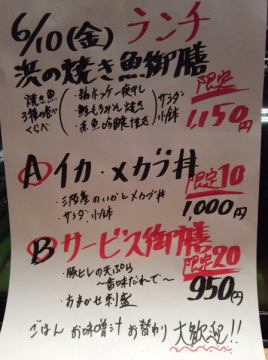 6/10(金) ランチ
浜の焼き魚御膳
焼き魚3種の食べくらべ
・縞ホッケ一夜干し
・鮭もろみ焼き
・赤魚
サラダ 小鉢
限定
1,150円
A イカ・メカブ丼
限定10
・三陸産のいかとメカブ丼
・サラダ 小鉢
1,000円
B サービス御膳
限定20
・豚ヒレの天ぷら
〜香味だれで〜
・おまかせ刺盛
950円
ごはん お味噌汁 お替わり 大歓迎!!